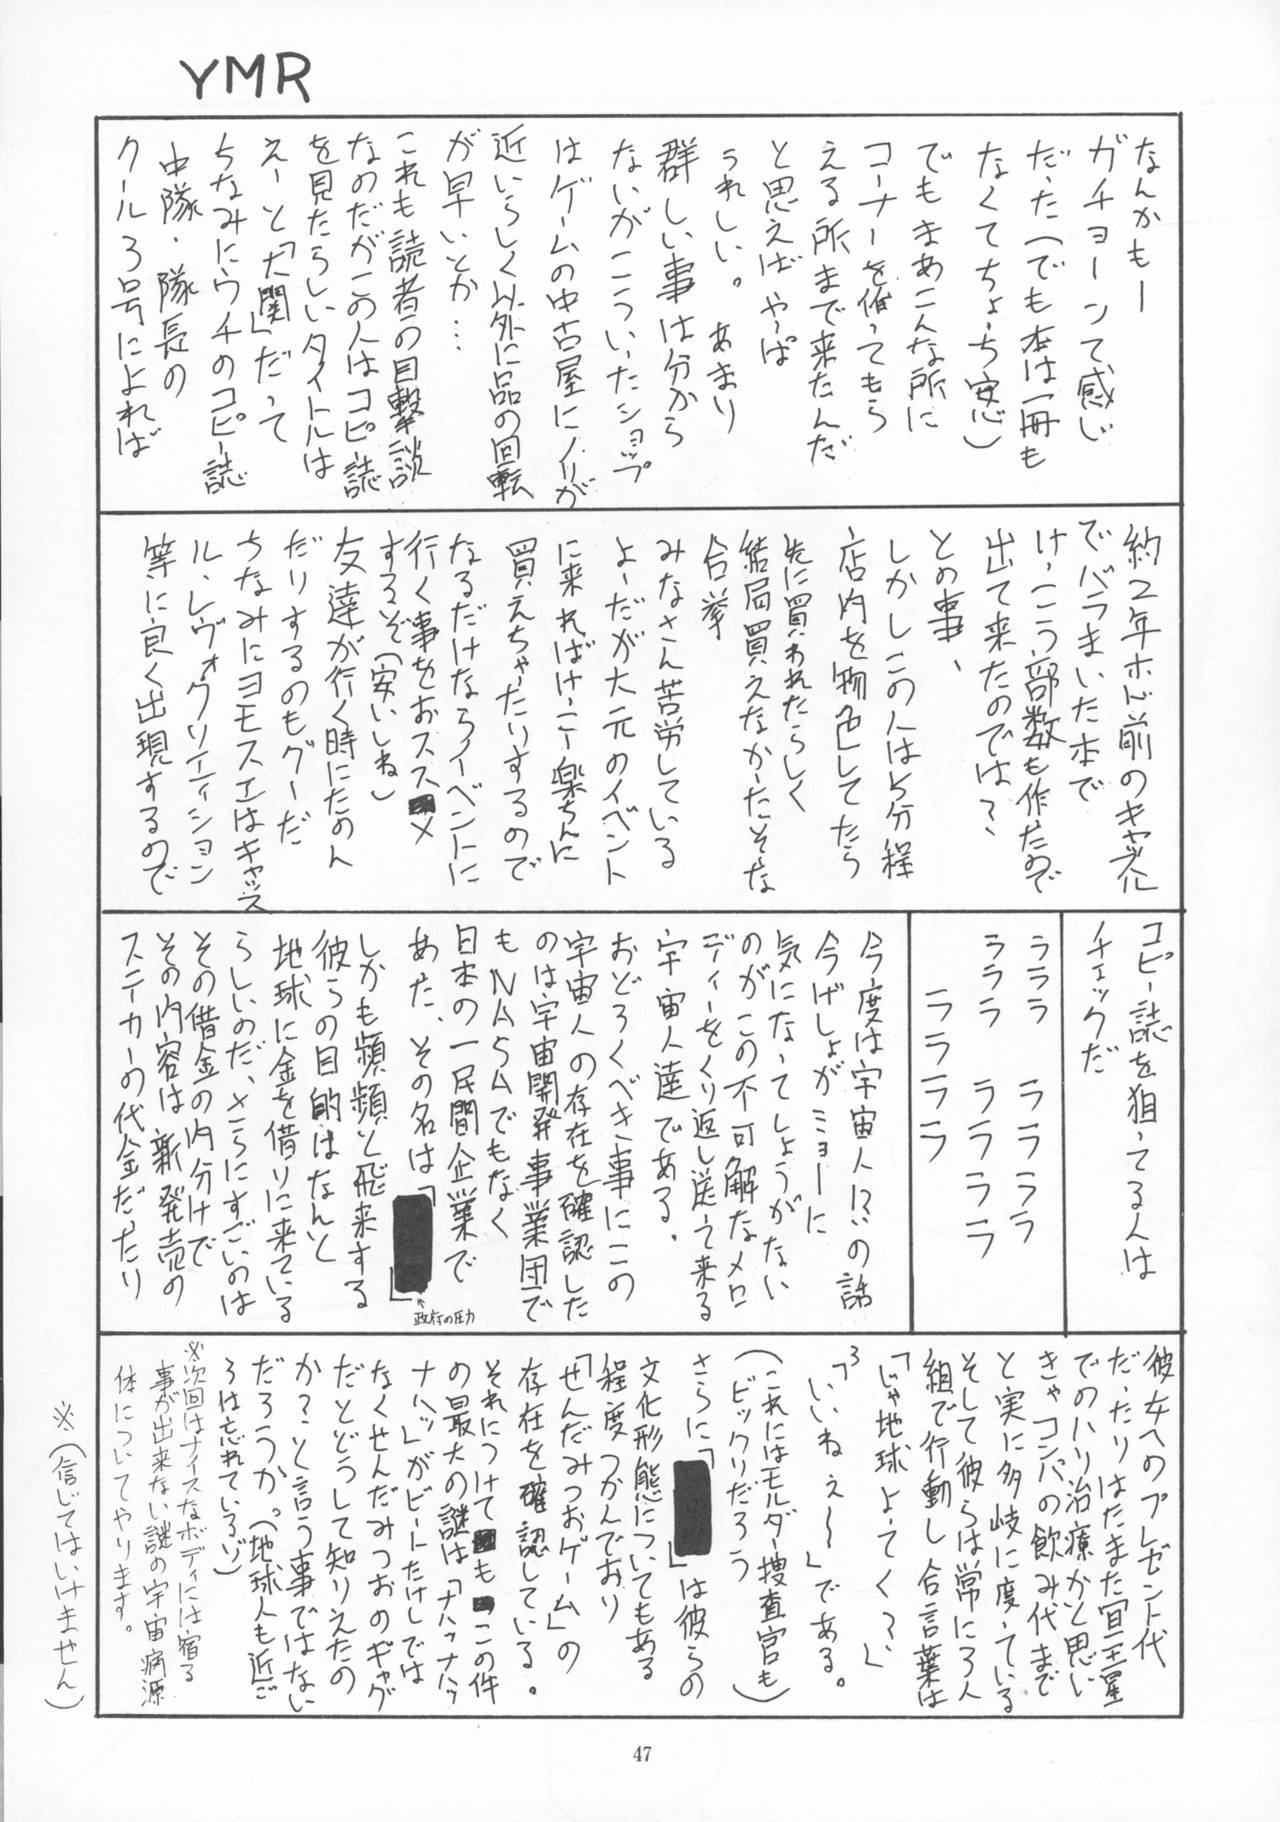 YMR
なんかもー
ガチョーンて感じ
だった(でも本は一冊も
なくてちょっち安心)
でもまあこんな所に
コーナーを作ってもら
える所まで来たんだ
と思えばやっぱ
うれしい。あまり
群しい事は分から
ないがこういったショップ
はゲームの中古屋にノリが
近いらしく以外に品の回転
が早いとか…
これも読者の目撃談
なのだがこの人はコピー誌
を見たらしいタイトルは
えーと「大関」だって
ちなみにウチのコピー誌
中隊・隊長の
クール3号によれば
約2年ホド前のキャッスル
でバラまいた本で
けっこう部数も作ったので
出て来たのでは?
との事、
しかしこの人は5分程
店内を物色してたら
先に買われたらしく
結局買えなかったそな
合掌
みなさん苦労している
よーだが大元のイベント
に来ればけっこー楽ちんに
買えちゃったりするので
なるだけならイベントに
行く事をおススメ
するぞ(安いしね)
友達が行く時にたのん
だりするのもグーだ
ちなみにヨモスエはキャッス
ル、レヴォ、クリエイション
等に良く出現するので
コピー誌を狙ってる人は
チェックだ
ラララ ララララ
ラララ ララララ
ララララ
今度は宇宙人!?の話
今げしょがミョーに
気になってしょうがない
のがこの不可解なメロ
ディーをくり返し送って来る
宇宙人達である。
おどろくべき事にこの
宇宙人の存在を確認した
のは宇宙開発事業団で
もNASAでもなく
日本の一民間企業で
あった、その名は「
」
←政府の圧力
しかも頻頻と飛来する
彼らの目的はなんと
地球に金を借りに来ている
らしいのだ、さらにすごいのは
その借金の内分けで
その内容は新発売の
スニーカーの代金だったり
彼女へのプレゼント代
だったりはたまた冥王星
でのハリ治療かと思い
きゃコンパの飲み代まで
と実に多岐に度っている
そして彼らは常に3人
組で行動し合言葉は
「じゃ地球よってく?」
「いいねぇ〜」である。
(これにはモルダー捜査官も
ビックリだろう)
さらに「 」は彼らの
文化形態についてもある
程度つかんでおり
「せんだみつおゲーム」の
存在を確認している。
それにつけても この件
の最大の謎は「ナハッナハッ
ナハッ」がビートたけしでは
なくせんだみつおのギャグ
だとどうして知りえたの
か?と言う事ではない
だろうか。(地球人も近ご
ろは忘れているゾ)
※次回はナイスなボディには宿る
事が出来ない謎の宇宙病源
体についてやります。
※(信じてはいけません)
47